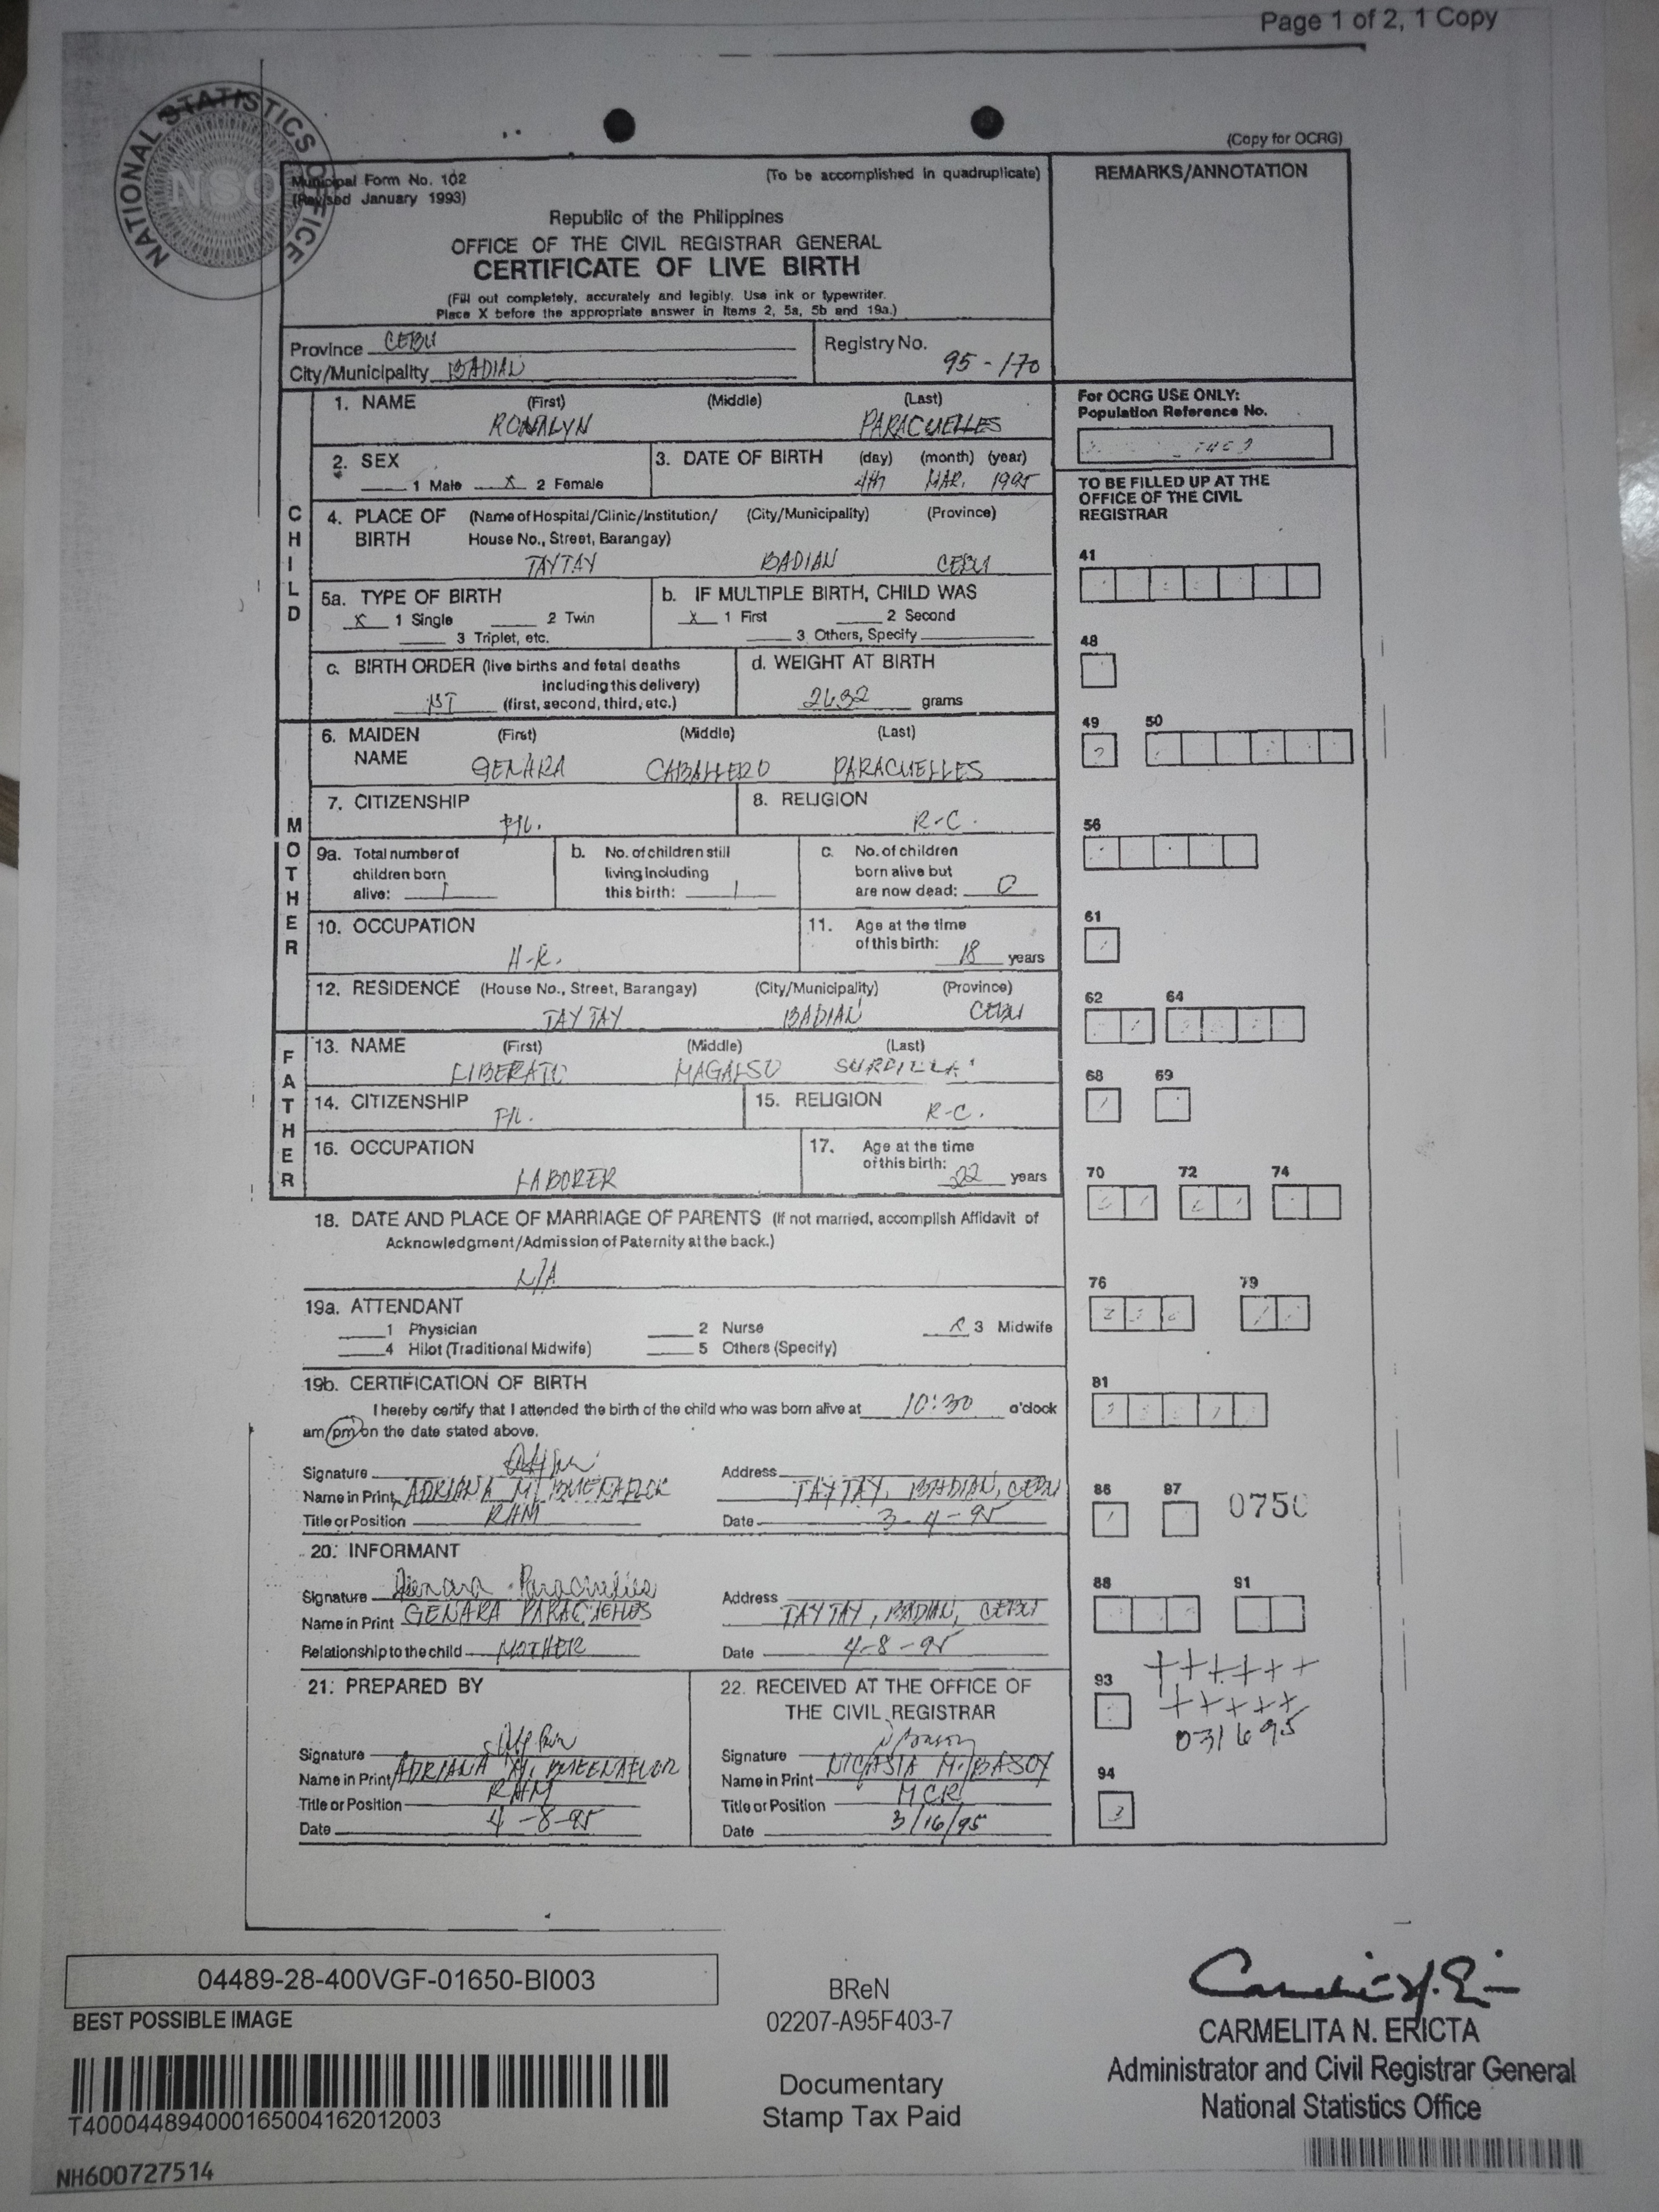 Page 1 of 2, 1 Copy
NATIONAL STATISTICS OFFICE
NSO
(Copy for OCRG)
Municipal Form No. 102
(To be accomplished in quadruplicate)
(Revised January 1993)
Republic of the Philippines
OFFICE OF THE CIVIL REGISTRAR GENERAL
CERTIFICATE OF LIVE BIRTH
(Fill out completely, accurately and legibly. Use ink or typewriter.
Place X before the appropriate answer in Items 2, 5a, 5b and 19a.)
REMARKS/ANNOTATION
Province CEBU
City/Municipality BADIAN
Registry No.
95-170
For OCRG USE ONLY:
Population Reference No.
TO BE FILLED UP AT THE
OFFICE OF THE CIVIL
REGISTRAR
CHILD
1. NAME (First) (Middle) (Last)
RONALYN PARACUELLES
2. SEX
1 Male X 2 Female
3. DATE OF BIRTH (day) (month) (year)
4th MAR. 1995
4. PLACE OF BIRTH (Name of Hospital/Clinic/Institution/ (City/Municipality) (Province)
House No., Street, Barangay)
TAYTAY BADIAN CEBU
5a. TYPE OF BIRTH
X 1 Single 2 Twin
3 Triplet, etc.
b. IF MULTIPLE BIRTH, CHILD WAS
X 1 First 2 Second
3 Others, Specify
c. BIRTH ORDER (live births and fetal deaths
including this delivery)
1ST (first, second, third, etc.)
d. WEIGHT AT BIRTH
grams
MOTHER
6. MAIDEN NAME (First) (Middle) (Last)
GENARA CABALLERO PARACUELLES
7. CITIZENSHIP
FIL.
8. RELIGION
R-C.
9a. Total number of
children born
alive: 1
b. No. of children still
living including
this birth: 1
c. No. of children
born alive but
are now dead: 0
10. OCCUPATION
H-K.
11. Age at the time
of this birth: 18 years
12. RESIDENCE (House No., Street, Barangay) (City/Municipality) (Province)
TAYTAY BADIAN CEBU
FATHER
13. NAME (First) (Middle) (Last)
LIBERATO MAGALSO
14. CITIZENSHIP
FIL.
15. RELIGION
R-C.
16. OCCUPATION
LABORER
17. Age at the time
of this birth: 22 years
18. DATE AND PLACE OF MARRIAGE OF PARENTS (If not married, accomplish Affidavit of
Acknowledgment/Admission of Paternity at the back.)
N/A
19a. ATTENDANT
1 Physician 2 Nurse X 3 Midwife
4 Hilot (Traditional Midwife) 5 Others (Specify)
19b. CERTIFICATION OF BIRTH
I hereby certify that I attended the birth of the child who was born alive at 10:30 o'clock
am/pm on the date stated above.
Signature
Name in Print ADRIANA M. BUENAFLOR
Title or Position RHM
Address
TAYTAY, BADIAN, CEBU
Date 3-4-95
20. INFORMANT
Signature Genara Paracuelles
Name in Print GENARA PARACUELLES
Relationship to the child MOTHER
Address
TAYTAY, BADIAN, CEBU
Date 4-8-95
21. PREPARED BY
Signature
Name in Print ADRIANA M. BUENAFLOR
Title or Position RHM
Date 4-8-95
22. RECEIVED AT THE OFFICE OF
THE CIVIL REGISTRAR
Signature
Name in Print NICASIA M. BASOY
Title or Position MCR
Date 3/16/95
41
48
49 50
56
61
62 64
68 69
70 72 74
76 79
81
86 87
88 91
93
++++++
+++++
031695
94
3
04489-28-400VGF-01650-BI003
BEST POSSIBLE IMAGE
T400044894000165004162012003
NH600727514
BReN
02207-A95F403-7
Documentary
Stamp Tax Paid
CARMELITA N. ERICTA
Administrator and Civil Registrar General
National Statistics Office